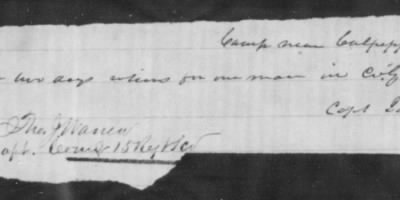 Camp near Culpepp
two days rations for one man in
Capt
Thos J Warren
apt. Comd 15 Reg